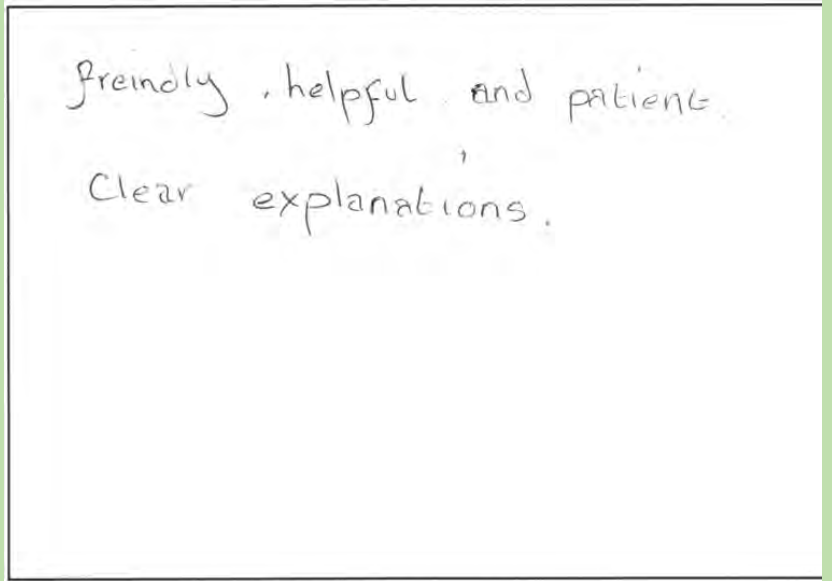 freindly, helpful and patient.
Clear explanations.